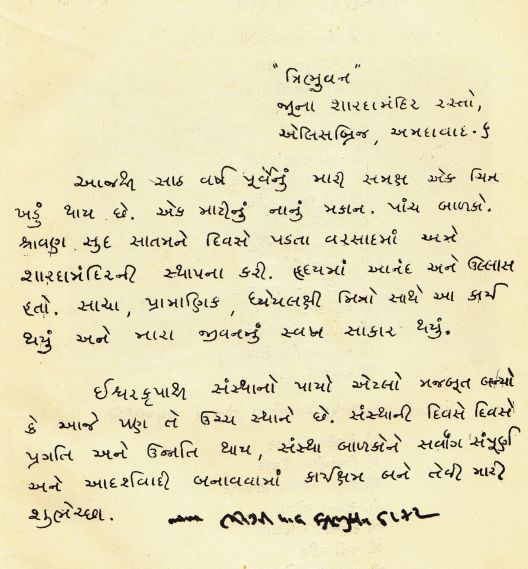 "ત્રિભુવન"
જૂના શારદામંદિર રસ્તો,
એલિસબ્રિજ, અમદાવાદ-૬
આજથી સાઠ વર્ષ પૂર્વેનું મારી સમક્ષ એક ચિત્ર
ખડું થાય છે. એક માટીનું નાનું મકાન. પાંચ બાળકો.
શ્રાવણ સુદ સાતમને દિવસે પડતા વરસાદમાં અમે
શારદામંદિરની સ્થાપના કરી. હૃદયમાં આનંદ અને ઉલ્લાસ
હતો. સાચા, પ્રામાણિક, ધ્યેયલક્ષી મિત્રો સાથે આ કાર્ય
થયું અને મારા જીવનનું સ્વપ્ન સાકાર થયું.
ઈશ્વરકૃપાથી સંસ્થાનો પાયો એટલો મજબૂત બન્યો
કે આજે પણ તે ઉચ્ચ સ્થાને છે. સંસ્થાની દિવસે દિવસે
પ્રગતિ અને ઉન્નતિ થાય, સંસ્થા બાળકોને સર્વાંગ સંપૂર્ણ
અને આદર્શવાદી બનાવવામાં કાર્યક્ષમ બને તેવી મારી
શુભેચ્છા.